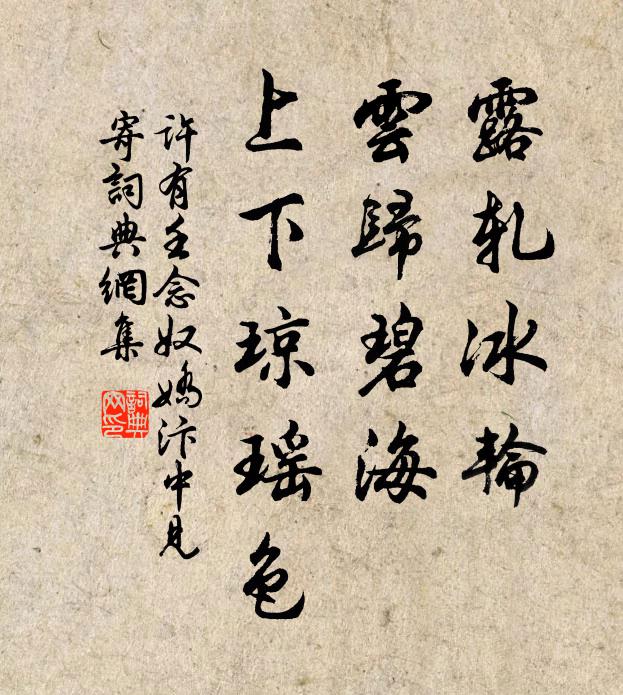 露軋冰輪
雲歸碧海
上下琼瑶色
许有壬念奴嬌汴中見
寄詞典網集
詞典
网印